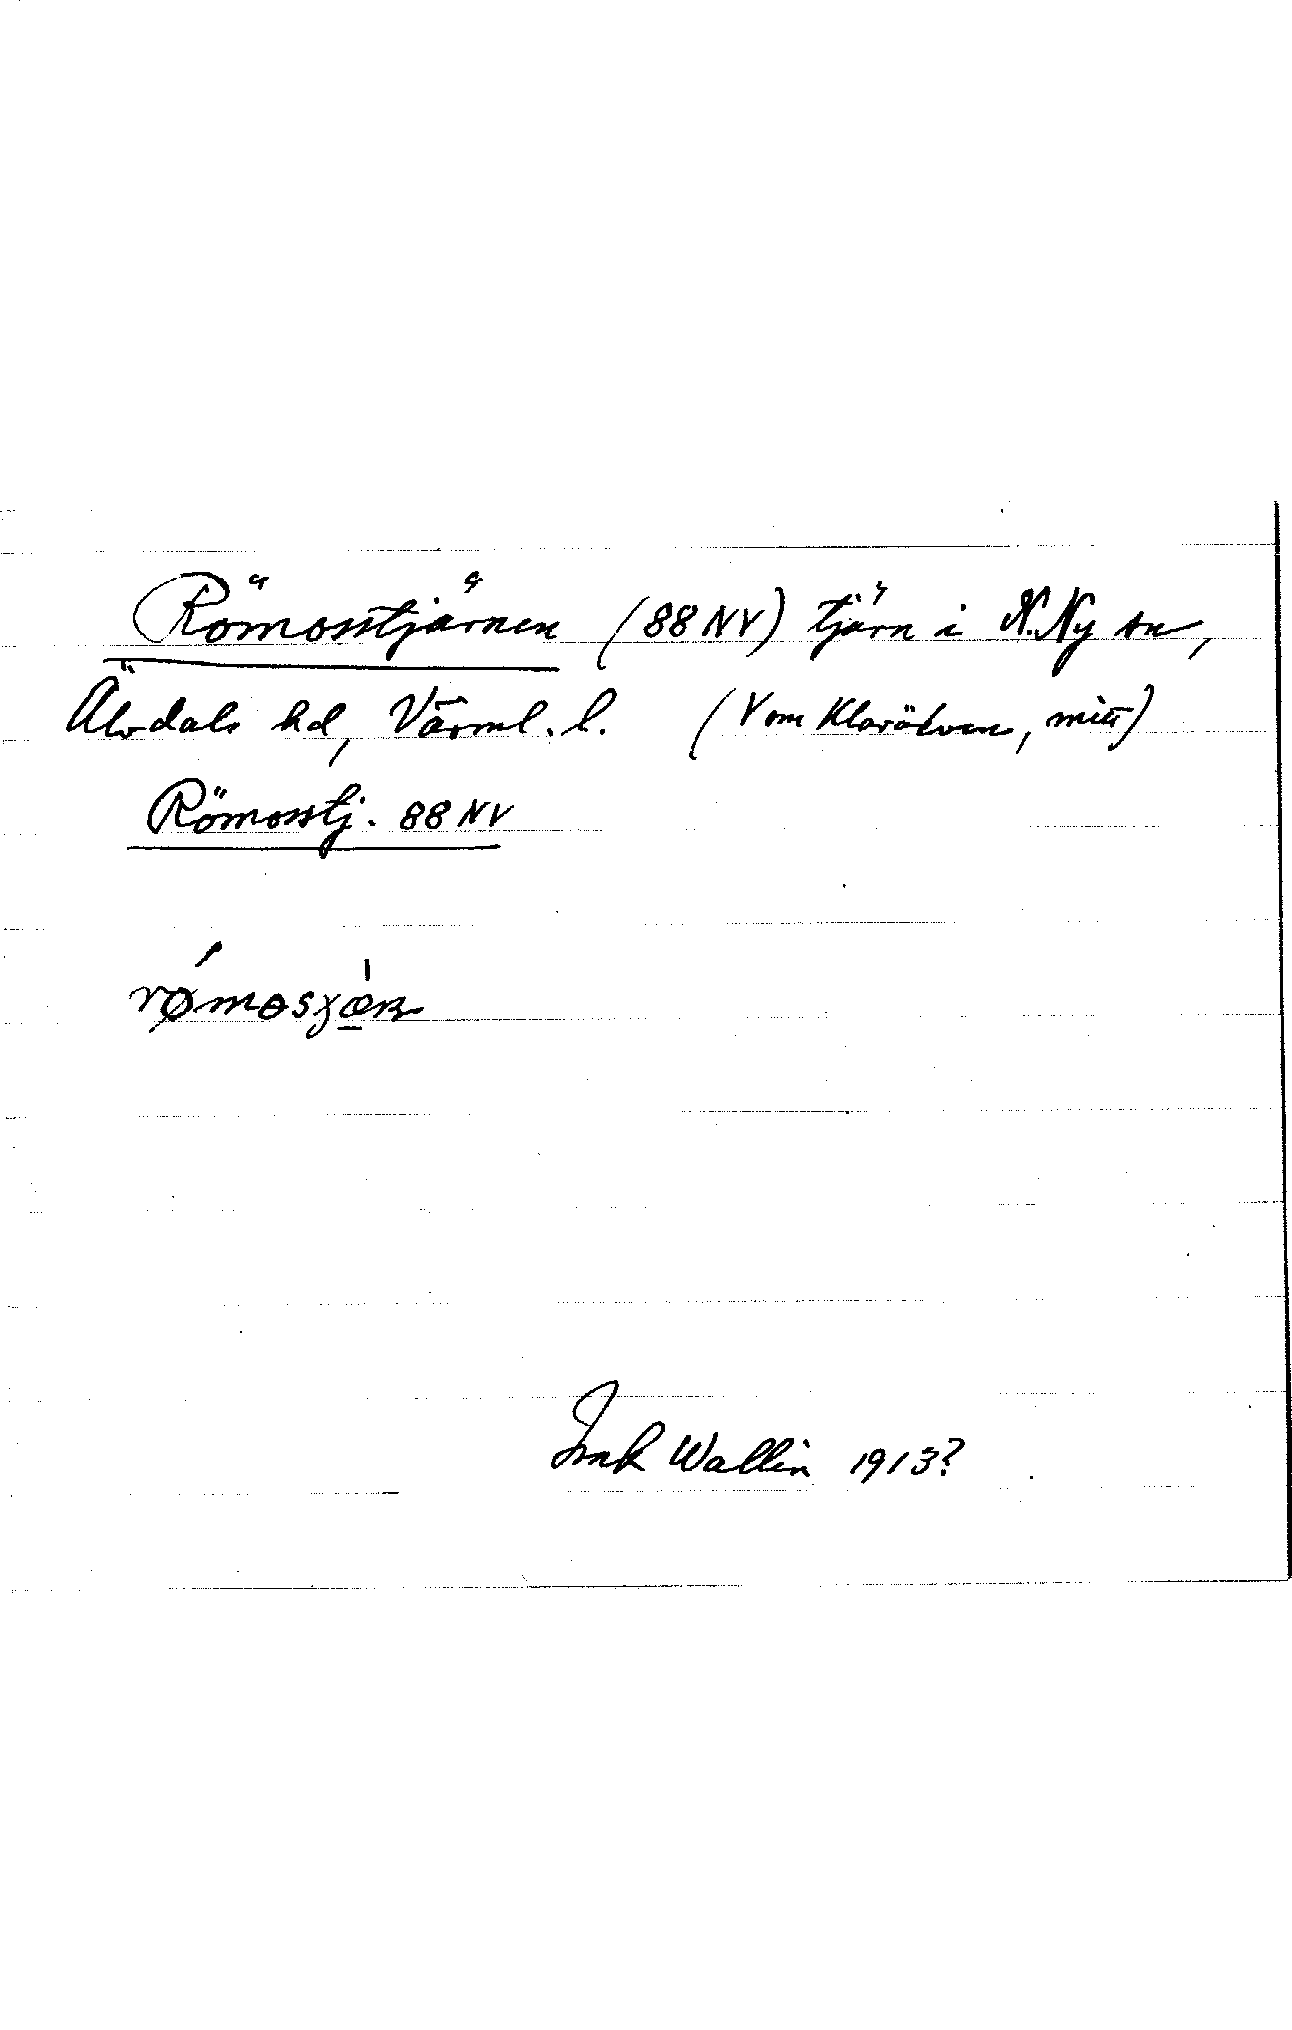 Römosstjärnen (88 NV) tjärn i N. Ny sn,
Älvdals hd, Värml. l. (V om Klarälven, mitt)
Römosstj. 88 NV
Wallin 1913?